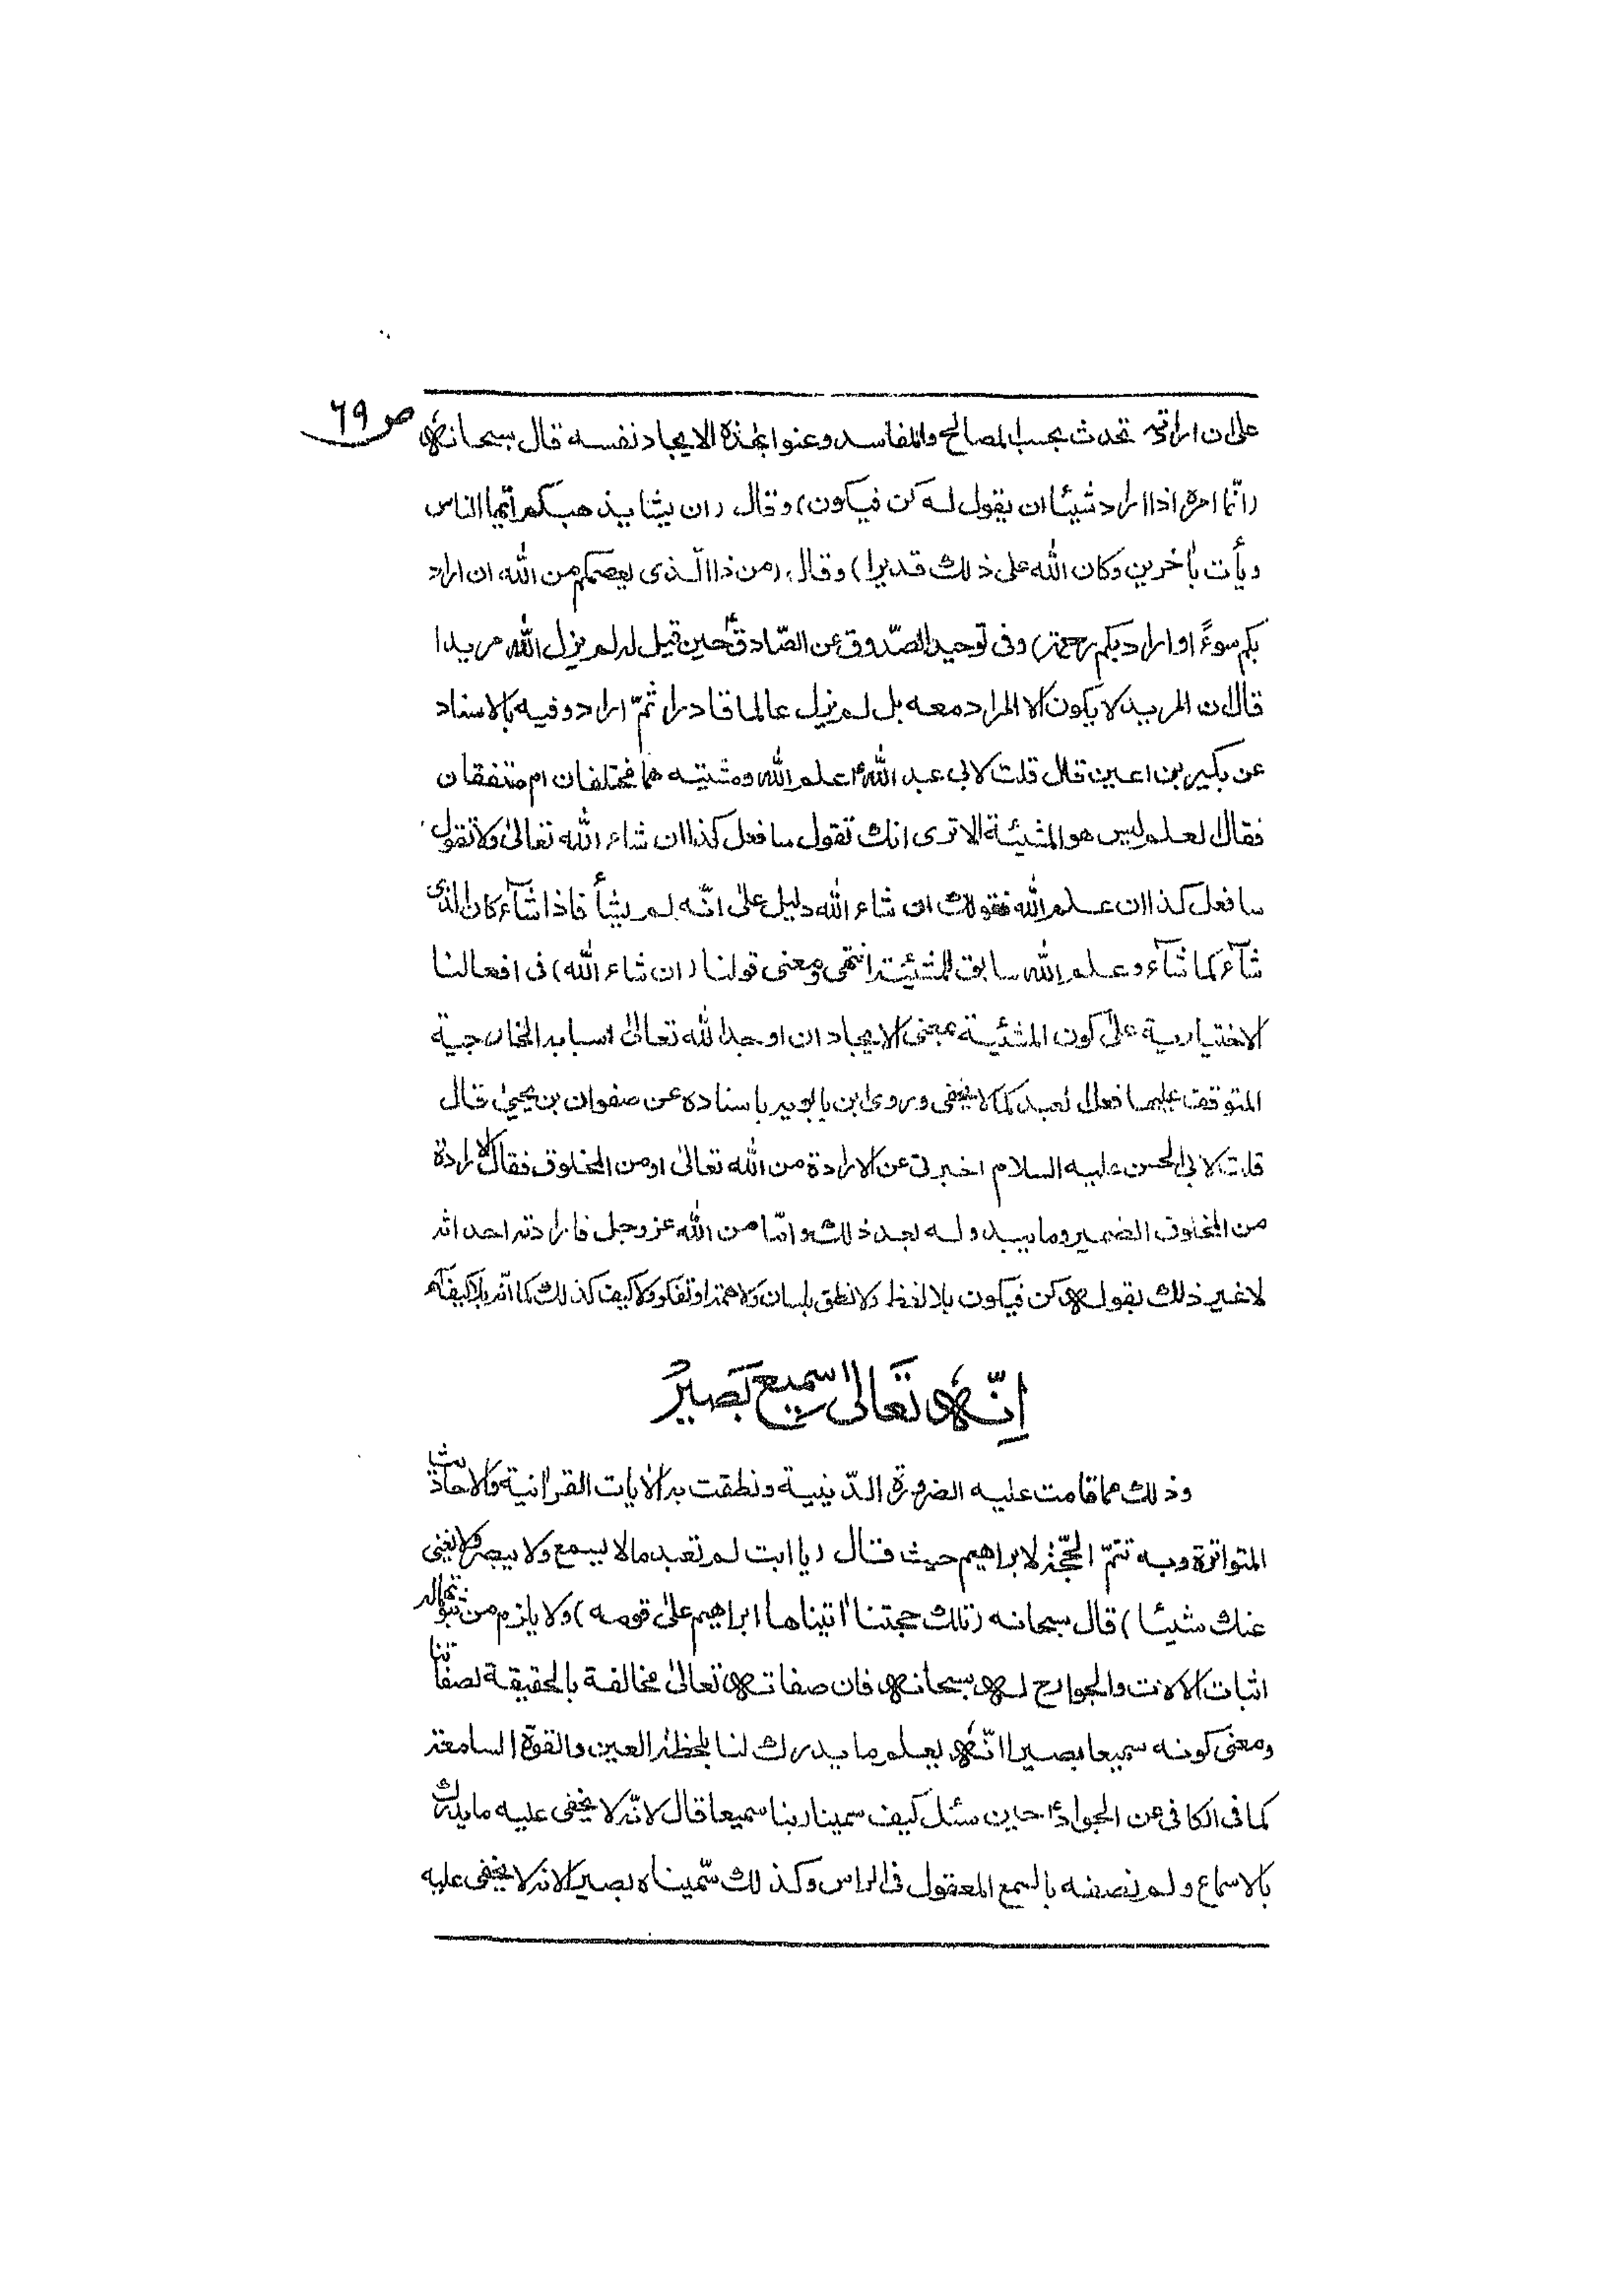 ص ٦٩
على ان ارادته تحدث بحسب المصالح والمفاسد وعنوا بهذه الايجاد نفسه قال سبحانه
(انّما امره اذا اراد شيئا ان يقول له كن فيكون) وقال (ان يشا يذهبكم ايّها الناس
ويأت بأخرين وكان الله على ذلك قديرا) وقال (من ذا الّذى يعصمكم من الله ان اراد
بكم سوءً او اراد بكم رحمة) وفى توحيد الصّدوق عن الصّادقؑ حين قيل له لم يزل الله مريدا
قال ان المريد لا يكون الا المراد معه بل لم يزل عالما قادرا ثمّ اراد وفيه بالاسناد
عن بكير بن اعين قال قلت لابى عبد اللهؑ علم الله ومشيته هما مختلفان ام متفقان
فقال العلم ليس هو المشيئة الا ترى انك تقول سافعل كذا ان شاء الله تعالىٰ ولا تقول
سافعل كذا ان علم الله فقولك ان شاء الله دليل علىٰ انّه لم يشأ فاذا شآء كان الذى
شآء كما شآء وعلم الله سابق للمشيئة انتهى ومعنى قولنا (ان شاء الله) فى افعالنا
الاختيارية علىٰ كون المشئية بمعنى الايجاد ان اوجد الله تعالىٰ اسبابه الخارجية
المتوقف عليها فعل العبد كما لا يخفى وروى ابن بابويه باسناده عن صفوان بن يحيىٰ قال
قلت لابى الحسن عليه السلام اخبرنى عن الارادة من الله تعالىٰ او من المخلوق فقال الارادة
من المخلوق الضمير وما يبدو له بعد ذلك وامّا من الله عز وجل فارادته احداثه
لا غير ذلك بقوله كن فيكون بلا لفظ ولا نطق بلسان ولا همة او تفكر ولا كيف كذلك كما انّه بلا كيف
اِنّهُ تَعَالىٰ سميع بَصيرٌ
وذلك مما قامت عليه الضرورة الدّينية ونطقت به الأيات القرانية والاحاديث
المتواترة وبه تتمّ الحجّة لابراهيم حيث قال (يا ابت لم تعبد مالا يسمع ولا يبصر ولا يغنى
عنك شيئا) قال سبحانه (تلك حجتنا اتيناها ابراهيم علىٰ قومه) ولا يلزم من ثبوتهما له
اثبات الالات والجوارح له سبحانه فان صفاته تعالىٰ مخالفة بالحقيقة لصفاتنا
ومعنى كونه سميعا بصيرا انّه يعلم ما يدرك لنا بلحظة العين والقوّة السامعة
كما فى الكافى عن الجوادؑ حين سئل كيف سمينا ربنا سميعا قال لانّه لا يخفى عليه ما يدرك
بالاسماع ولم نصفه بالسمع المعقول فى الراس وكذلك سّميناه بصيرا لانه لا يخفى عليه